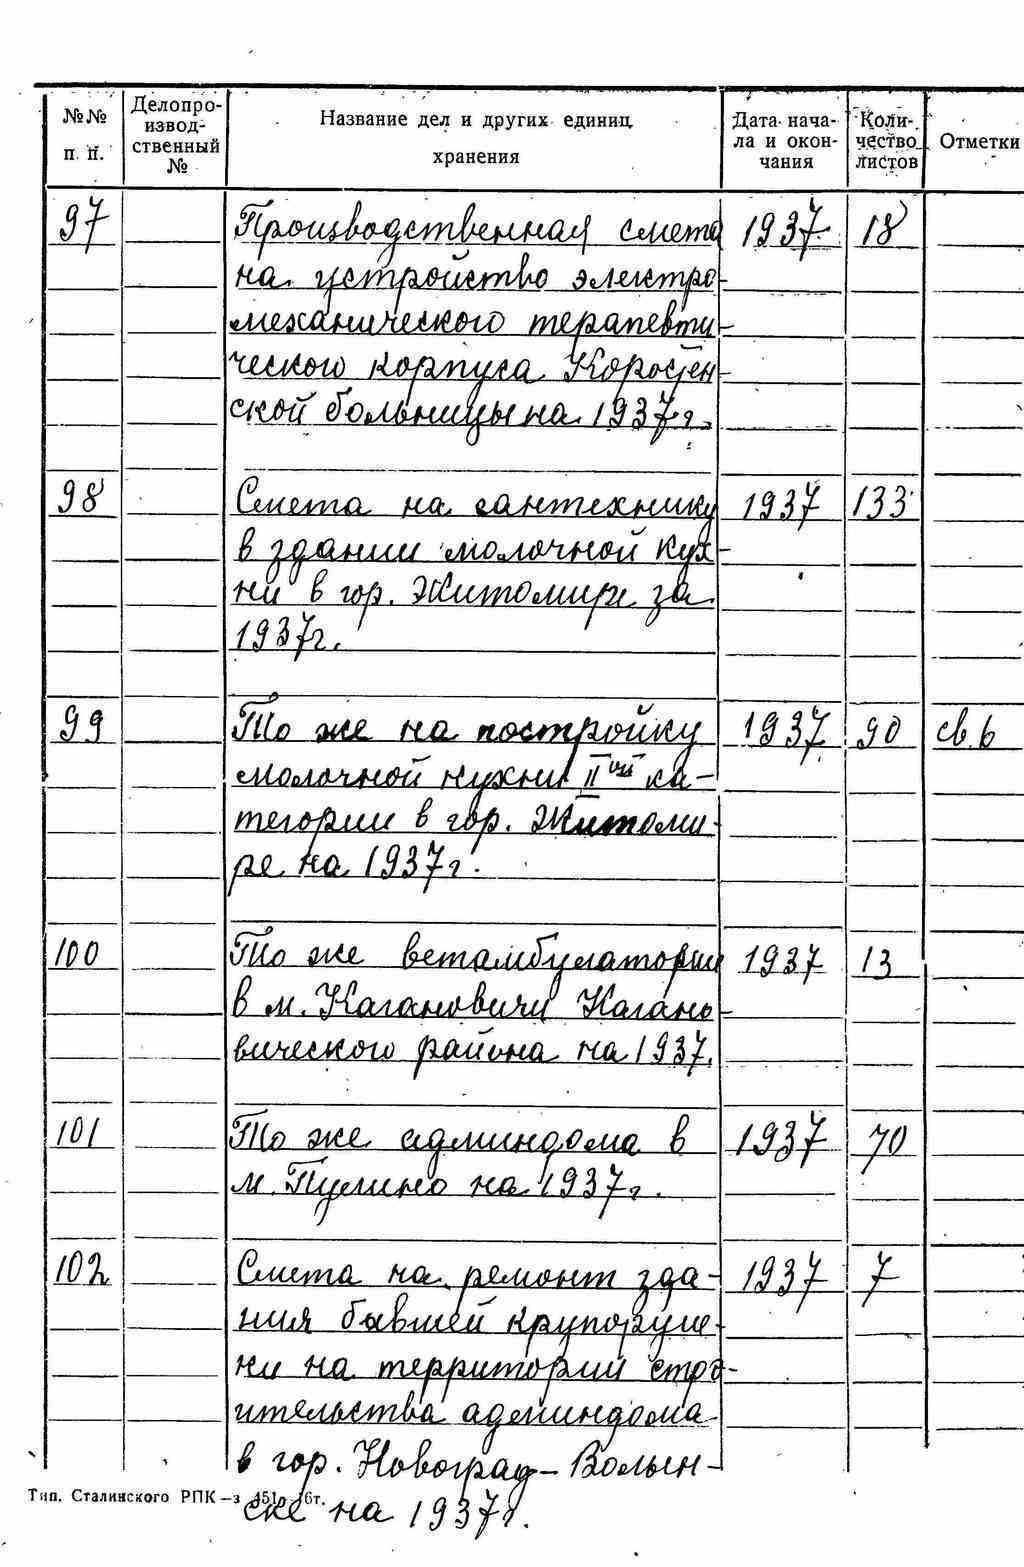 №№ п. п. Делопроизвод-ственный № Название дел и других единиц хранения Дата нача-ла и окон-чания Коли-чество листов Отметки
97 Производственная смета 1937 18
на устройство электро-
механического терапевти-
ческого корпуса Коростен-
ской больницы на 1937 г.
98 Смета на сантехнику 1937 133
в здании молочной кух-
ни в гор. Житомире за
1937 г.
99 То же на постройку 1937 90 св. 6
молочной кухни II ой ка-
тегории в гор. Житоми-
ре на 1937 г.
100 То же ветамбулатории 1937 13
в м. Кагановичи Кагано-
вического района на 1937.
101 То же админдома в 1937 70
м. Пулино на 1937 г.
102 Смета на ремонт зда- 1937 7
ния бывшей крупоруше-
ки на территории стро-
ительства админдома
в гор. Новоград-Волын-
ске на 1937 г.
Тип. Сталинского РПК—з